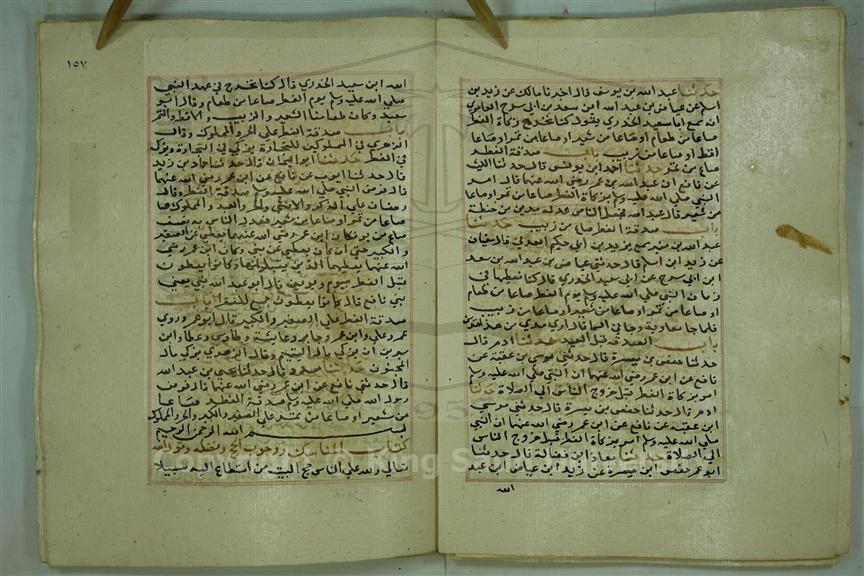 حدثنا عبد الله بن يوسف قال اخبرنا مالك عن زيد بن
اسلم عن عياض بن عبد الله ابن سعد بن ابي سرح العامري
انه سمع ابا سعيد الخدري يقول كنا نخرج زكاة الفطر
صاعا من طعام او صاعا من شعير او صاعا من تمر او صاعا من
اقط او صاعا من زبيب باب صدقة الفطر
صاع من تمر حدثنا احمد ابن يونس قال حدثنا الليث
عن نافع ان عبد الله بن عمر رضي الله عنهما قال امر
النبي صلى الله عليه وسلم بزكاة الفطر صاعا من تمر او صاعا
من شعير قال عبد الله فجعل الناس عدله مدين من حنطة
باب صدقة الفطر صاع من زبيب حدثنا
عبد الله بن منير سمع يزيد بن ابي حكيم العدني قال سفيان
عن زيد ابن اسلم قال حدثني عياض بن عبد الله بن سعد
ابن ابي سرح عن ابي سعيد الخدري قال كنا نعطيها في
زمان النبي صلى الله عليه وسلم يوم الفطر صاعا من طعام
او صاعا من تمر او صاعا من شعير او صاعا من زبيب
فلما جا معاوية وجات السمرا قال اري مدي من هذا
باب الصدقة قبل العيد حدثنا ادم قال
حدثنا حفص بن ميسرة قال حدثني موسى بن عقبة عن
نافع عن ابن عمر رضي الله عنهما ان النبي صلى الله عليه وسلم
امر بزكاة الفطر قبل خروج الناس الي الصلاة حدثنا
ادم قال حدثنا حفص بن ميسرة قال حدثني موسي
ابن عقبة عن نافع عن ابن عمر رضي الله عنهما ان النبي
صلي الله عليه وسلم امر بزكاة الفطر قبل خروج الناس
الي الصلاة حدثنا معاذ ابن فضالة قال حدثنا
ابو عمر حفص ابن ميسرة عن زيد ابن عياض ابن عبد
الله
١٥٧
الله ابن سعيد الخدري قال كنا نخرج في عهد النبي
صلي الله عليه وسلم يوم الفطر صاعا من طعام وقال ابو
سعيد وكان طعامنا الشعير والزبيب والاقط والتمر
باب صدقة الفطر علي الحر والمملوك وقال
الزهري في المملوكين للتجارة يزكي في التجارة ويزكي
في الفطر حدثنا ابو النعمان قال حدثنا حماد بن زيد
قال حدثنا ايوب عن نافع عن ابن عمر رضي الله عنهما
قال فرض النبي صلي الله عليه وسلم صدقة الفطر او قال
رمضان علي الذكر والانثي والحر والعبد والمملوك صاعا
صاعا من تمر او صاعا من شعير فعدل الناس به نصف
صاع من بر فكان ابن عمر رضي الله عنهما يعطي عن الصغير
والكبير حتي ان كان يعطي عن بني وكان ابن عمر رضي
الله عنهما يعطيها الذين يقبلونها وكانوا يعطون
قبل الفطر بيوم او يومين قال ابو عبد الله بني يعني
بني نافع قال كانوا يعطون ليجمع للفقرا باب
صدقة الفطر علي الصغير والكبير قال ابو عمر وروي
عمر وعلي وابن عمر وجابر وعايشة وطاوس وعطا وابن
سيرين ان يزكي مال اليتيم وقال الزهري يزكي مال
المجنون حدثنا مسدد قال حدثنا يحيي بن عبد الله
قال حدثني نافع عن ابن عمر رضي الله عنهما قال فرض
رسول الله صلي الله عليه وسلم صدقة الفطر صاعا
من شعير او صاعا من تمر علي الصغير والكبير والحر والمملوك
بسم الله الرحمن الرحيم
كتاب المناسك وجوب الحج وفضله وقول الله
تعالي ولله علي الناس حج البيت من استطاع اليه سبيلا